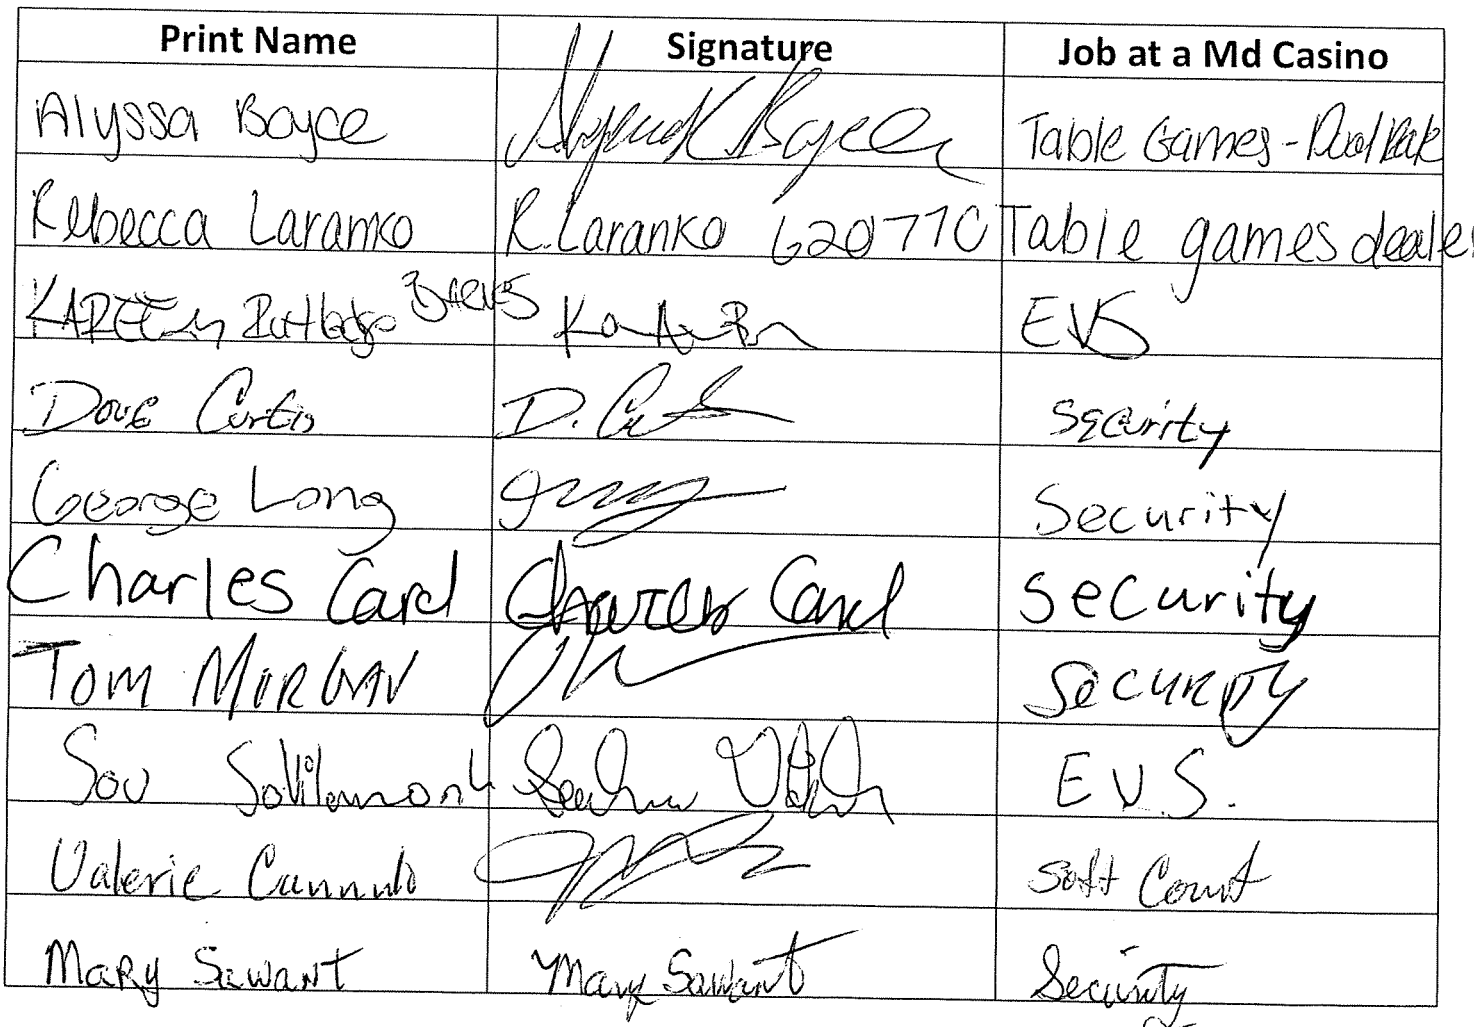 Print Name Signature Job at a Md Casino
Alyssa Boyce Boyce Table Games - Dual Rate
Rebecca Laranko R. Laranko 620771C Table games dealer
KAREEM Rutledge EVS
Doug Curtis D. Security
George Long Security
Charles Card Charles Card Security
Tom MORGAN Security
Sou E.V.S.
Valerie Cannulo Soft Count
Mary Sewant Mary Sewant Security